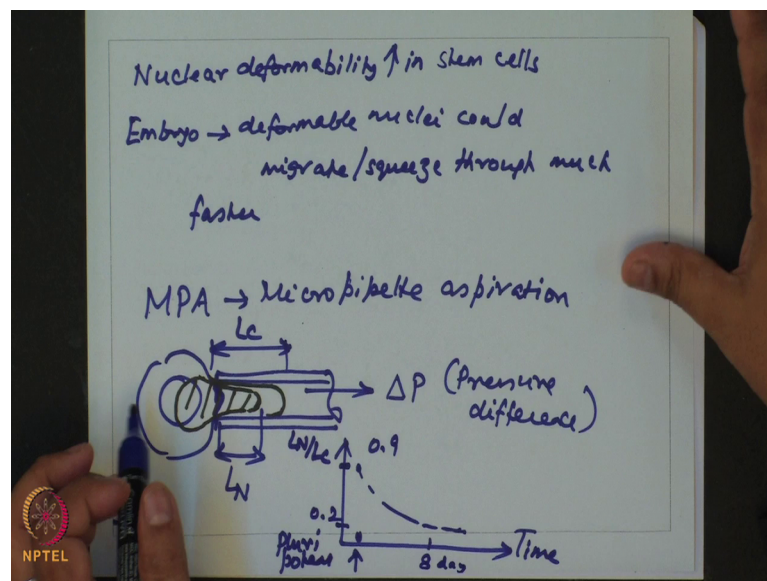 Nuclear deformability ↑ in stem cells
Embryo → deformable nuclei could
migrate/squeeze through much
faster
MPA → Micropipette aspiration
Lc
ΔP (Pressure
difference)
LN
LN/Lc
0.9
0.2
0
Pluri
potent
↑
8 day
Time
NPTEL